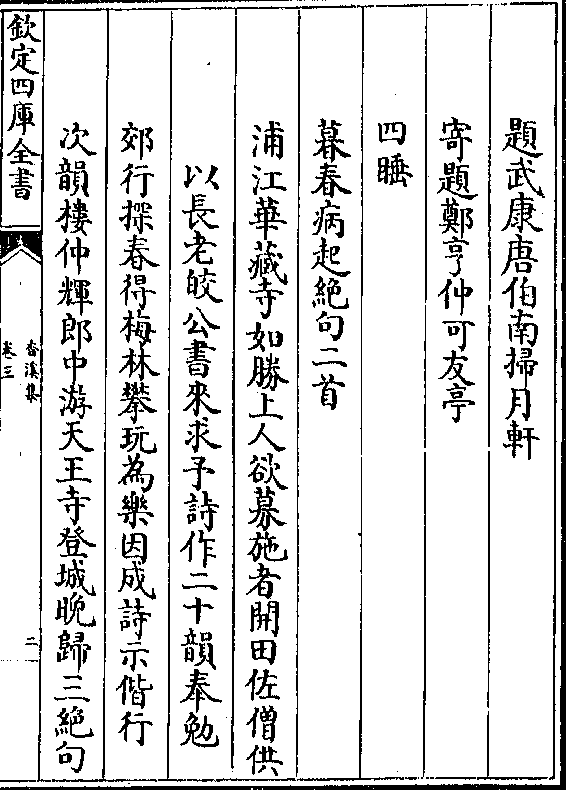 題武康唐伯南掃月軒
寄題鄭亨仲可友亭
四睡
暮春病起絶句二首
浦江華藏寺如勝上人欲募施者開田佐僧供
以長老皎公書來求予詩作二十韻奉勉
郊行探春得梅林攀玩為樂因成詩示偕行
次韻樓仲輝郎中游天王寺登城晚歸三絶句
欽定四庫全書
香溪集
卷三
二